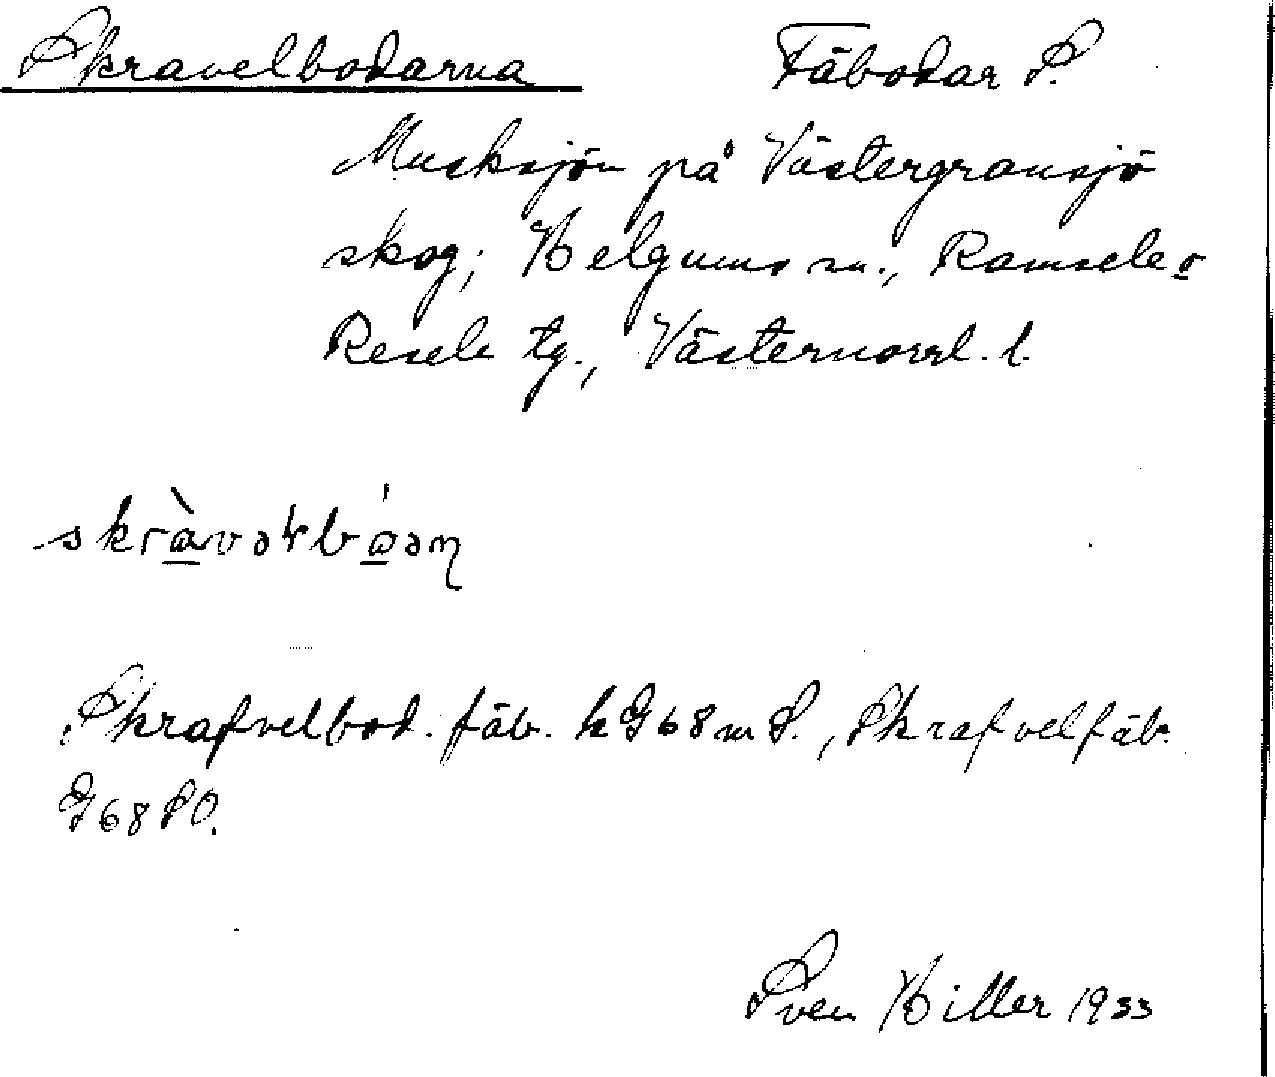 Skravelbodarna Fäbodar S.
Musksjön på Västergransjö
skog; Helgums sn., Ramsele o
Resele tg., Västernorrl. l.
skràvəɬbóəɳ
Skrafvelbod. fäb. k G68 m S., Skrafvelfäb.
G68 SO.
Sven Hiller 1933